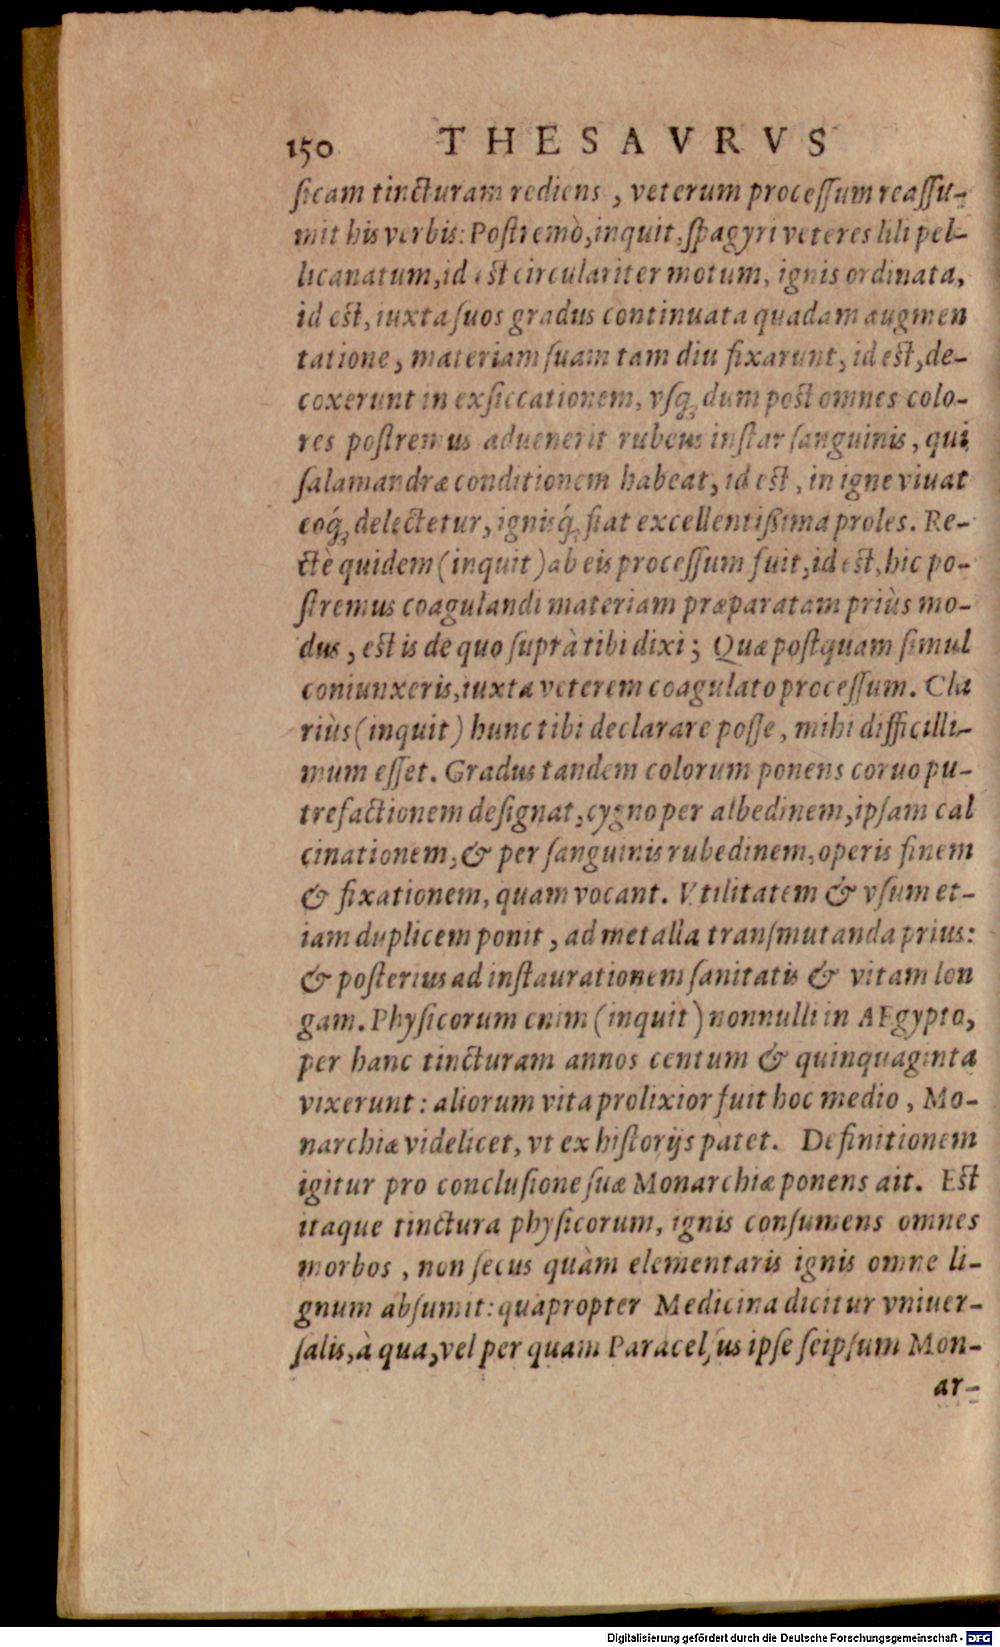 150 THESAVRVS
ſicam tincturam rediens, veterum proceſſum reaſſu-
mit his verbis: Poſtremò, inquit, ſpagyri veteres lili pel-
licanatum, id est circulariter motum, ignis ordinata,
id est, iuxta ſuos gradus continuata quadam augmen
tatione, materiam ſuam tam diu fixarunt, id est, de-
coxerunt in exſiccationem, vſq; dum post omnes colo-
res poſtremus aduenerit rubeus inſtar ſanguinis, qui
ſalamandræ conditionem habeat, id est, in igne viuat
eoq́; delectetur, igniſq́; fiat excellentißima proles. Re-
ctè quidem (inquit) ab eis proceſſum fuit, id est, hic po-
ſtremus coagulandi materiam præparatam priùs mo-
dus, est is de quo ſuprà tibi dixi; Quæ poſtquam ſimul
coniunxeris, iuxta veterem coagulato proceſſum. Cla
riùs (inquit) hunc tibi declarare poſſe, mihi difficilli-
mum eſſet. Gradus tandem colorum ponens coruo pu-
trefactionem deſignat, cygno per albedinem, ipſam cal
cinationem, & per ſanguinis rubedinem, operis finem
& fixationem, quam vocant. Vtilitatem & vſum et-
iam duplicem ponit, ad metalla tranſmutanda prius:
& poſterius ad inſtaurationem ſanitatis & vitam lon
gam. Phyſicorum enim (inquit) nonnulli in AEgypto,
per hanc tincturam annos centum & quinquaginta
vixerunt: aliorum vita prolixior fuit hoc medio, Mo-
narchiæ videlicet, vt ex hiſtorijs patet. Definitionem
igitur pro concluſione ſuæ Monarchiæ ponens ait. Est
itaque tinctura phyſicorum, ignis conſumens omnes
morbos, non ſecus quàm elementaris ignis omne li-
gnum abſumit: quapropter Medicina dicitur vniuer-
ſalis, à qua, vel per quam Paracelſus ipſe ſeipſum Mon-
ar-
Digitalisierung gefördert durch die Deutsche Forschungsgemeinschaft - DFG